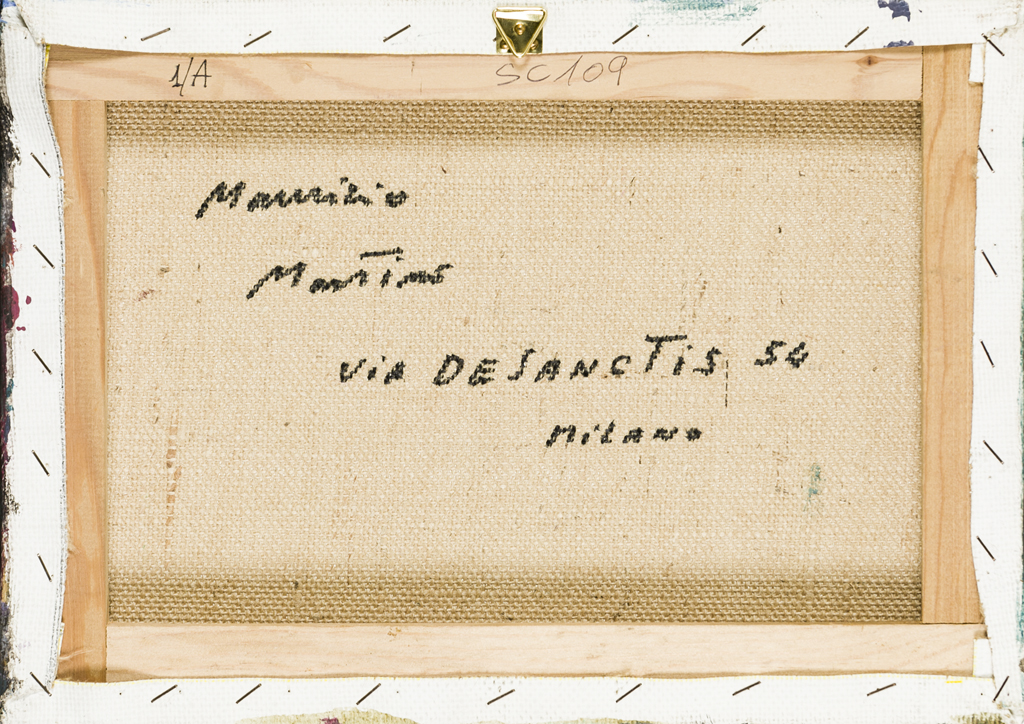 1/A SC109
Maurizio
Martins
Via DE SANCTiS 54
Milano